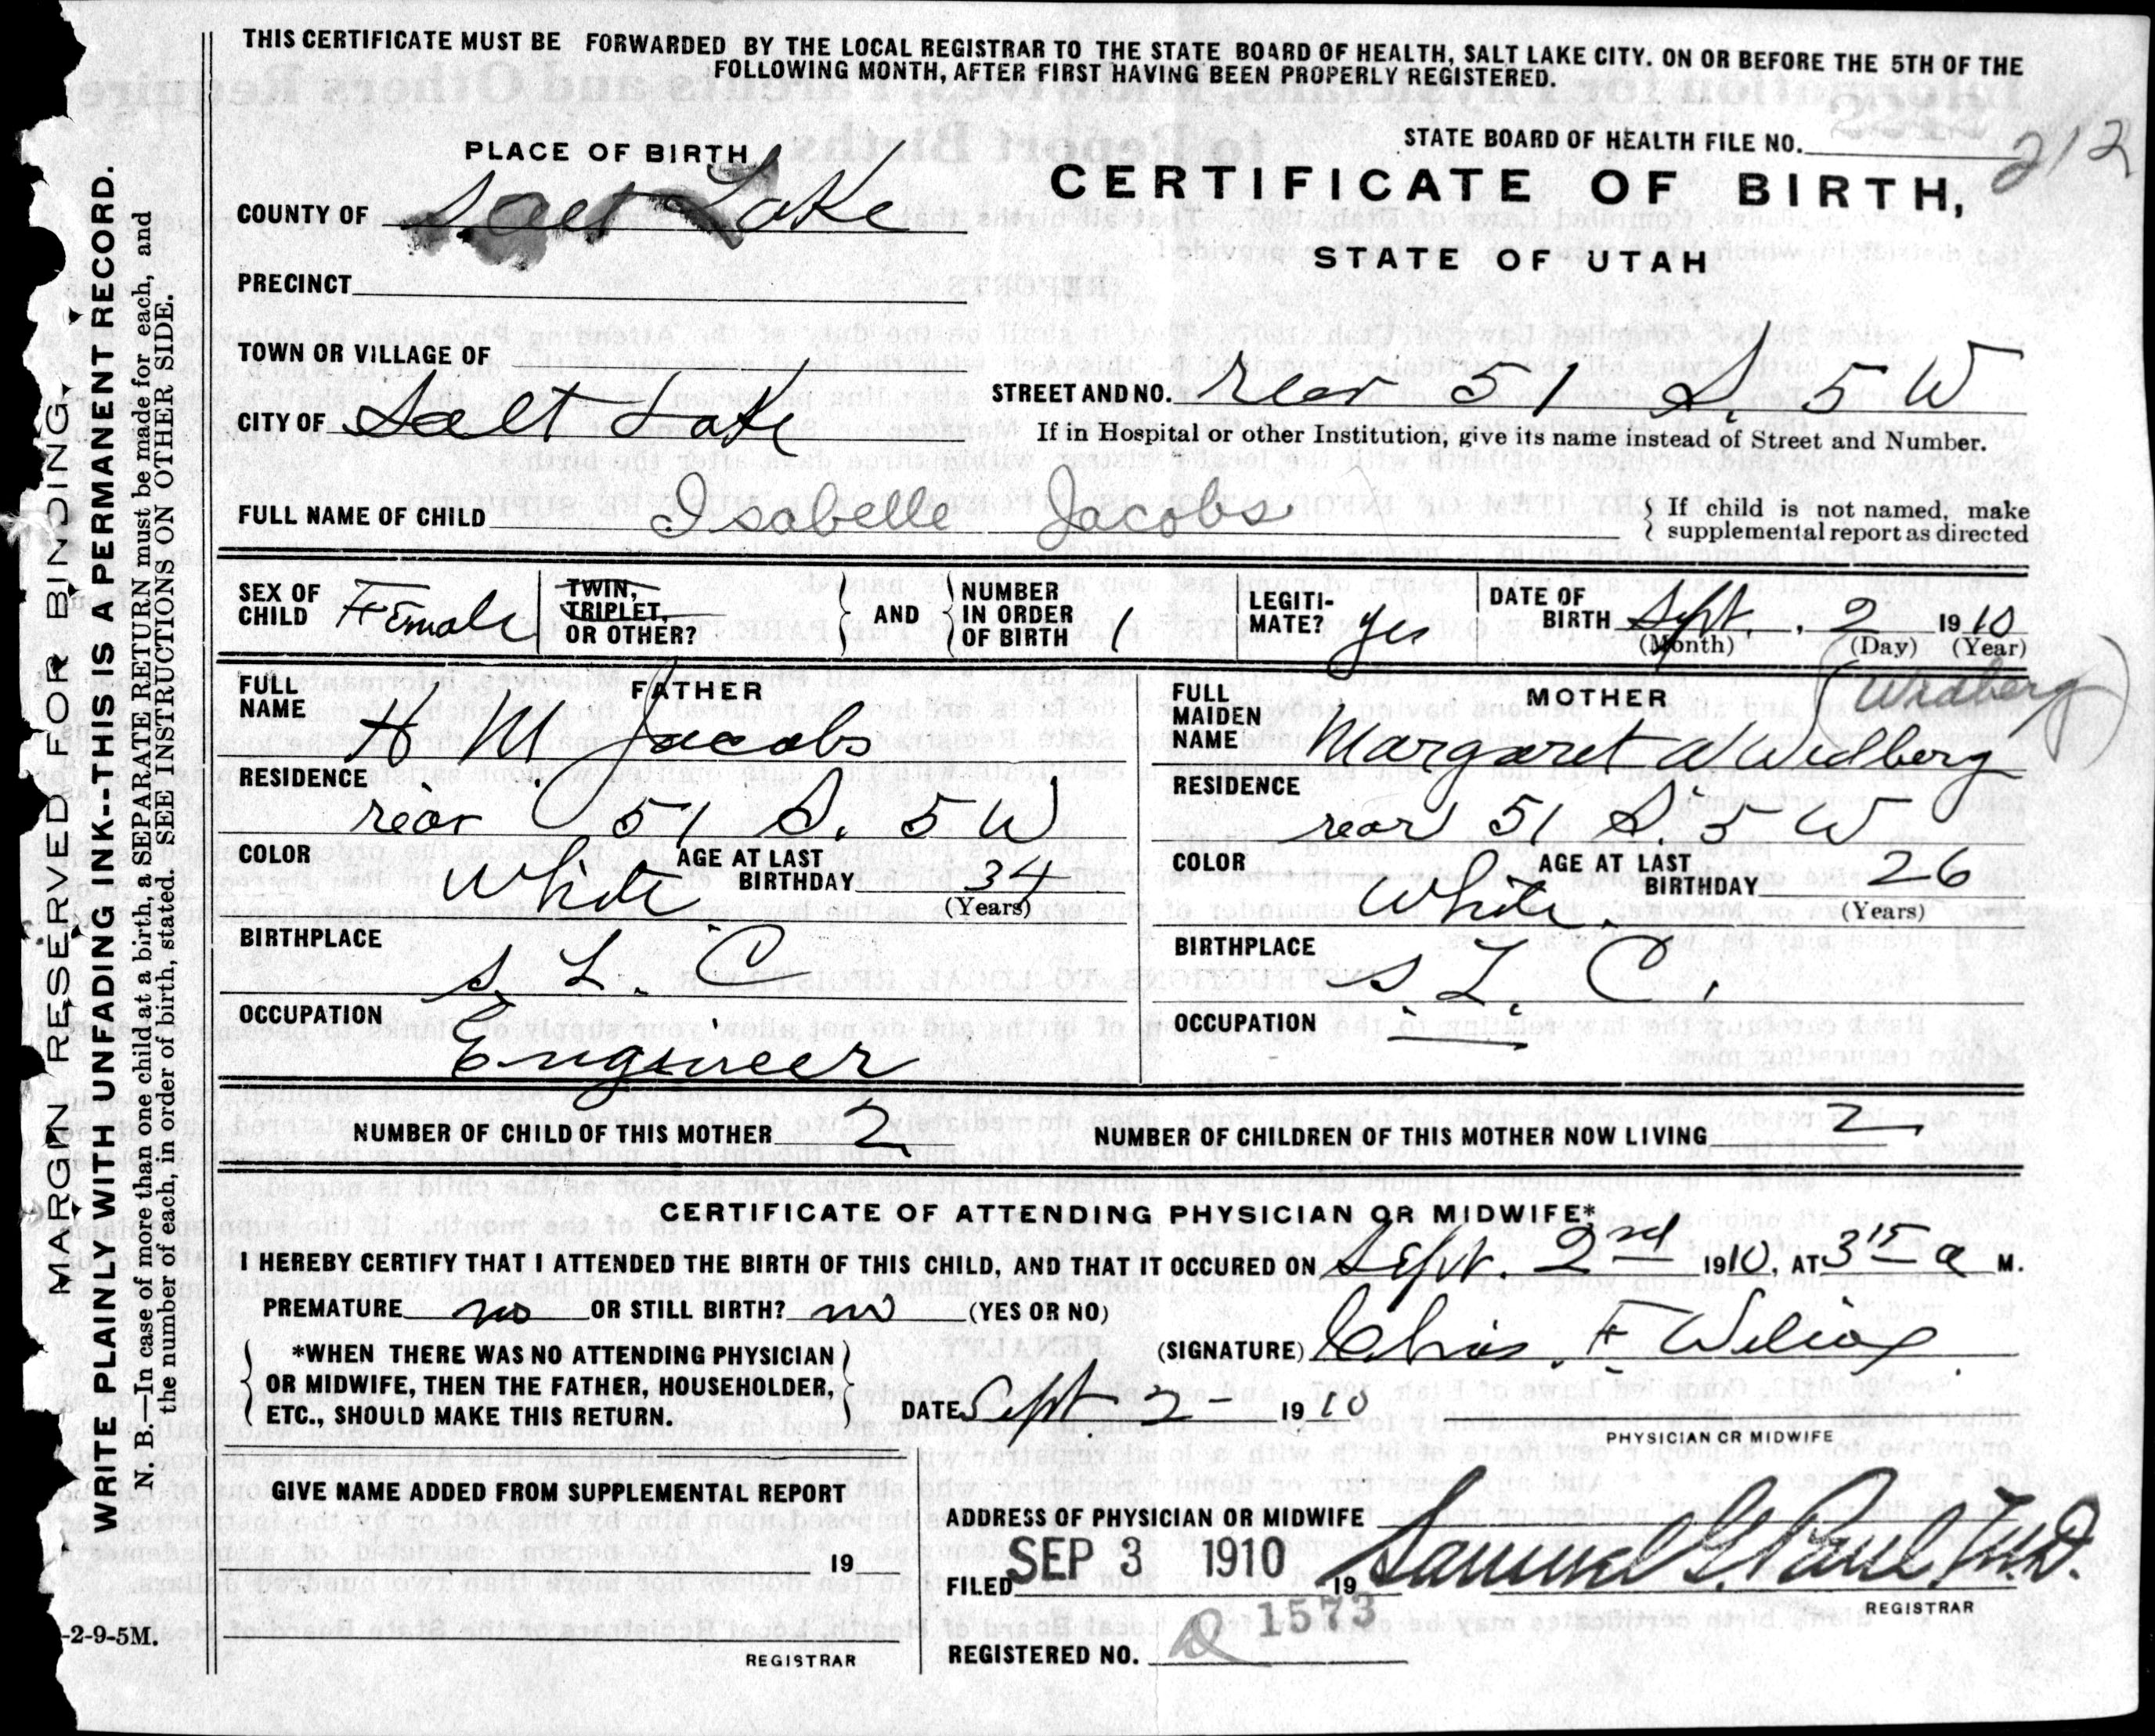 THIS CERTIFICATE MUST BE FORWARDED BY THE LOCAL REGISTRAR TO THE STATE BOARD OF HEALTH, SALT LAKE CITY. ON OR BEFORE THE 5TH OF THE
FOLLOWING MONTH, AFTER FIRST HAVING BEEN PROPERLY REGISTERED.
STATE BOARD OF HEALTH FILE NO. 212
PLACE OF BIRTH
CERTIFICATE OF BIRTH,
COUNTY OF Salt Lake
STATE OF UTAH
PRECINCT
TOWN OR VILLAGE OF
STREET AND NO. rear 51 S. 5 W
CITY OF Salt Lake
If in Hospital or other Institution, give its name instead of Street and Number.
FULL NAME OF CHILD Isabelle Jacobs
If child is not named, make
supplemental report as directed
SEX OF CHILD Female
TWIN,
TRIPLET,
OR OTHER?
AND
NUMBER
IN ORDER
OF BIRTH 1
LEGITI-
MATE? yes
DATE OF
BIRTH Sept. 2 1910
(Month) (Day) (Year)
FATHER
FULL
NAME H M Jacobs
RESIDENCE
rear 51 S. 5 W
COLOR White
AGE AT LAST
BIRTHDAY 34
(Years)
BIRTHPLACE
S. L. C
OCCUPATION
Engineer
MOTHER (Widberg)
FULL
MAIDEN
NAME Margaret W Widberg
RESIDENCE
rear 51 S. 5 W
COLOR White
AGE AT LAST
BIRTHDAY 26
(Years)
BIRTHPLACE
S. L. C.
OCCUPATION
NUMBER OF CHILD OF THIS MOTHER 2
NUMBER OF CHILDREN OF THIS MOTHER NOW LIVING 2
CERTIFICATE OF ATTENDING PHYSICIAN OR MIDWIFE*
I HEREBY CERTIFY THAT I ATTENDED THE BIRTH OF THIS CHILD, AND THAT IT OCCURED ON Sept. 2nd 1910, AT 3 15 a M.
PREMATURE no OR STILL BIRTH? no (YES OR NO)
(SIGNATURE) Chas. F Wilcox
*WHEN THERE WAS NO ATTENDING PHYSICIAN
OR MIDWIFE, THEN THE FATHER, HOUSEHOLDER,
ETC., SHOULD MAKE THIS RETURN.
DATE Sept 2 - 1910
PHYSICIAN OR MIDWIFE
GIVE NAME ADDED FROM SUPPLEMENTAL REPORT
19
REGISTRAR
ADDRESS OF PHYSICIAN OR MIDWIFE
FILED SEP 3 1910 19 Samuel G. Paul, M.D.
REGISTRAR
REGISTERED NO. 1573
-2-9-5M.
MARGIN RESERVED FOR BINDING
WRITE PLAINLY WITH UNFADING INK--THIS IS A PERMANENT RECORD.
N. B.—In case of more than one child at a birth, a SEPARATE RETURN must be made for each, and
the number of each, in order of birth, stated. SEE INSTRUCTIONS ON OTHER SIDE.